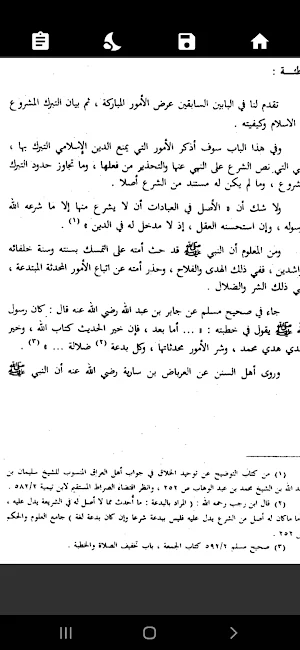 ـطئـة :
تقدم لنا في البابين السابقين عرض الأمور المباركة ، ثم بيان التبرك المشروع
الاسلام وكيفيته .
وفي هذا الباب سوف أذكر الأمور التي يمنع الدين الإسلامي التبرك بها ،
ـي التي نص الشرع على النهي عنها والتحذير من فعلها ، وما تجاوز حدود التبرك
شروع ، وما لم يكن له مستند من الشرع أصلا .
ولا شك أن « الأصل في العبادات أن لا يشرع منها إلا ما شرعه الله
سوله ، وإن استحسنه العقل ، إذ لا مدخل له في الدين » (١) .
ومن المعلوم أن النبي ﷺ قد حث أمته على التمسك بسنته وسنة خلفائه
راشدين ، ففي ذلك الهدى والفلاح ، وحذر أمته عن اتباع الأمور المحدثة المبتدعة ،
ـي ذلك الشر والضلال .
جاء في صحيح مسلم عن جابر بن عبد الله رضي الله عنه قال : كان رسول
ـه ﷺ يقول في خطبته : « ... أما بعد ، فإن خير الحديث كتاب الله ، وخير
ـدي هدي محمد ، وشر الأمور محدثاتها ، وكل بدعة (٢) ضلالة ... » (٣) .
وروى أهل السنن عن العرباض بن سارية رضي الله عنه أن النبي ﷺ
(١) من كتاب التوضيح عن توحيد الخلاق في جواب أهل العراق المنسوب للشيخ سليمان بن
ـد الله بن الشيخ محمد بن عبد الوهاب ص ٢٥٢ ، وانظر اقتضاء الصراط المستقيم لابن تيمية ٥٨٢/٢ .
(٢) قال ابن رجب رحمه الله : ( المراد بالبدعة : ما أحدث مما لا أصل له في الشريعة يدل عليه ،
ما ماكان له أصل من الشرع يدل عليه فليس ببدعة شرعا وإن كان بدعة لغة ) جامع العلوم والحكم
ص ٢٥٢ .
(٣) صحيح مسلم ٥٩٢/٢ كتاب الجمعة ، باب تخفيف الصلاة والخطبة .